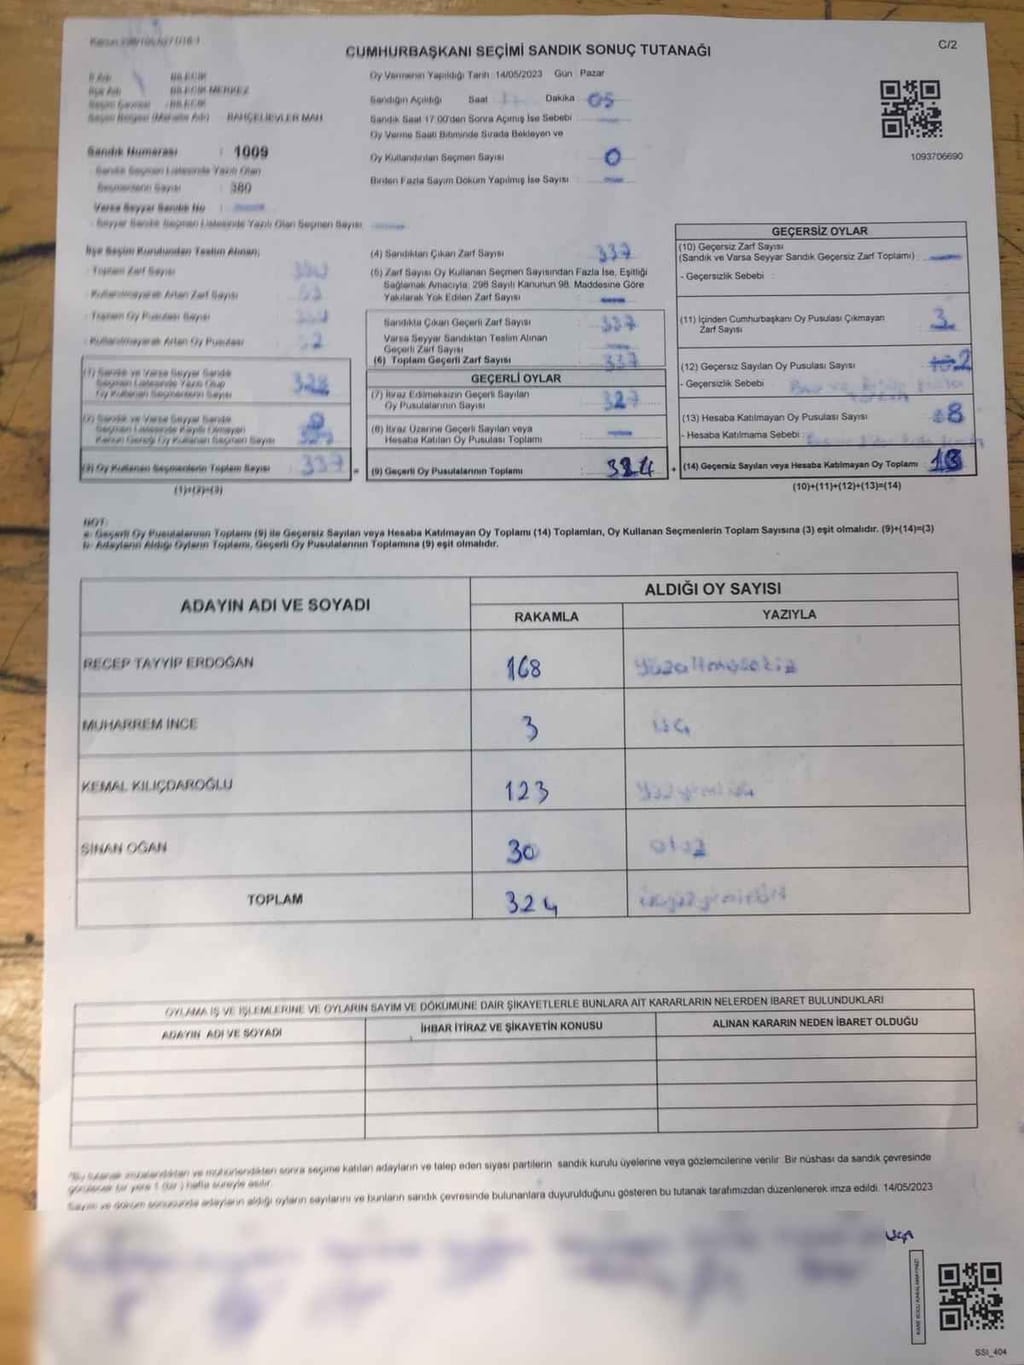 CUMHURBAŞKANI SEÇİMİ SANDIK SONUÇ TUTANAĞI
C/2
Oy Vermenin Yapıldığı Tarih 14/05/2023 Gün Pazar
İl Adı BİLECİK
İlçe Adı BİLECİK MERKEZ
BİLECİK
BAHÇELİEVLER MAH.
Sandığın Açıldığı Saat 17 Dakika 05
Sandık Saat 17:00'den Sonra Açımış İse Sebebi
Oy Verme Saati Bitiminde Sırada Bekleyen ve
Oy Kullandırılan Seçmen Sayısı 0
Birden Fazla Sayım Döküm Yapılmış İse Sayısı
1093706690
Sandık Numarası : 1009
Sandık Seçmen Listesinde Yazılı Olan
Seçmenlerin Sayısı : 380
Varsa Seyyar Sandık No
- Seyyar Sandık Seçmen Listesinde Yazılı Olan Seçmen Sayısı
İlçe Seçim Kurulundan Teslim Alınan;
- Toplam Zarf Sayısı
- Kullanılmayarak Artan Zarf Sayısı
- Toplam Oy Pusulası Sayısı
- Kullanılmayarak Artan Oy Pusulası
(1) Sandık ve Varsa Seyyar Sandık
Seçmen Listesinde Yazılı Olup
Oy Kullanan Seçmenlerin Sayısı 328
(2) Sandık ve Varsa Seyyar Sandık
Seçmen Listesinde Kayıtlı Olmayan
Kanun Gereği Oy Kullanan Seçmen Sayısı
(3) Oy Kullanan Seçmenlerin Toplam Sayısı 337
(1)+(2)=(3)
(4) Sandıktan Çıkan Zarf Sayısı 337
(5) Zarf Sayısı Oy Kullanan Seçmen Sayısından Fazla İse, Eşitliği
Sağlamak Amacıyla, 298 Sayılı Kanunun 98. Maddesine Göre
Yakılarak Yok Edilen Zarf Sayısı
Sandıkta Çıkan Geçerli Zarf Sayısı 337
Varsa Seyyar Sandıktan Teslim Alınan
Geçerli Zarf Sayısı
(6) Toplam Geçerli Zarf Sayısı 337
GEÇERLİ OYLAR
(7) İtiraz Edilmeksizin Geçerli Sayılan
Oy Pusulalarının Sayısı 327
(8) İtiraz Üzerine Geçerli Sayılan veya
Hesaba Katılan Oy Pusulası Toplamı
= (9) Geçerli Oy Pusulalarının Toplamı 324
GEÇERSİZ OYLAR
(10) Geçersiz Zarf Sayısı
(Sandık ve Varsa Seyyar Sandık Geçersiz Zarf Toplamı)
- Geçersizlik Sebebi :
(11) İçinden Cumhurbaşkanı Oy Pusulası Çıkmayan
Zarf Sayısı 3
(12) Geçersiz Sayılan Oy Pusulası Sayısı 2
- Geçersizlik Sebebi
(13) Hesaba Katılmayan Oy Pusulası Sayısı 8
- Hesaba Katılmama Sebebi
+ (14) Geçersiz Sayılan veya Hesaba Katılmayan Oy Toplamı 13
(10)+(11)+(12)+(13)=(14)
NOT:
a- Geçerli Oy Pusulalarının Toplamı (9) ile Geçersiz Sayılan veya Hesaba Katılmayan Oy Toplamı (14) Toplamları, Oy Kullanan Seçmenlerin Toplam Sayısına (3) eşit olmalıdır. (9)+(14)=(3)
b- Adayların Aldığı Oyların Toplamı, Geçerli Oy Pusulalarının Toplamına (9) eşit olmalıdır.
ADAYIN ADI VE SOYADI
ALDIĞI OY SAYISI
RAKAMLA YAZIYLA
RECEP TAYYİP ERDOĞAN 168 yüzaltmışsekiz
MUHARREM İNCE 3 üç
KEMAL KILIÇDAROĞLU 123
SİNAN OĞAN 30 otuz
TOPLAM 324
OYLAMA İŞ VE İŞLEMLERİNE VE OYLARIN SAYIM VE DÖKÜMÜNE DAİR ŞİKAYETLERLE BUNLARA AİT KARARLARIN NELERDEN İBARET BULUNDUKLARI
ADAYIN ADI VE SOYADI İHBAR İTİRAZ VE ŞİKAYETİN KONUSU ALINAN KARARIN NEDEN İBARET OLDUĞU
*Bu tutanak imzalandıktan ve mühürlendikten sonra seçime katılan adayların ve talep eden siyasi partilerin sandık kurulu üyelerine veya gözlemcilerine verilir. Bir nüshası da sandık çevresinde
görülecek bir yere 1 (bir) hafta süreyle asılır.
Sayım ve döküm sonucunda adayların aldığı oyların sayılarını ve bunların sandık çevresinde bulunanlara duyurulduğunu gösteren bu tutanak tarafımızdan düzenlenerek imza edildi. 14/05/2023
SSI_404